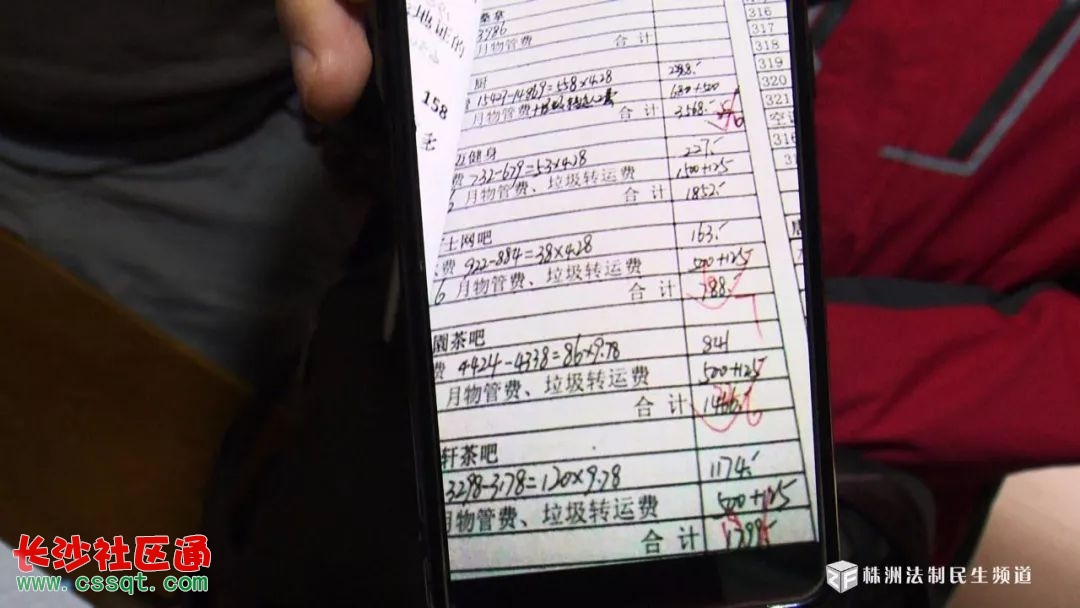 地证的
158
桑拿
3986
月物管费 合计
厨
15427-14869=558×4.28 2388.-
月物管费 680+500
合计 3568.-
健身
费 732-679=53×4.28 227.-
月物管费、垃圾转运费 1500+125
合计 1852.-
士网吧
费 922-884=38×4.28 163.-
6 月物管费、垃圾转运费 500+125
合计 788.-
園茶吧
费 4424-4338=86×9.78 841
月物管费、垃圾转运费 500+125
合计 1466.-
轩茶吧
3298-3178=120×9.78 1174.-
月物管费、垃圾转运费 500+125
合计
316
317
318
319
320
321
空
316
长沙社区通
www.cssqt.com
株洲法制民生频道